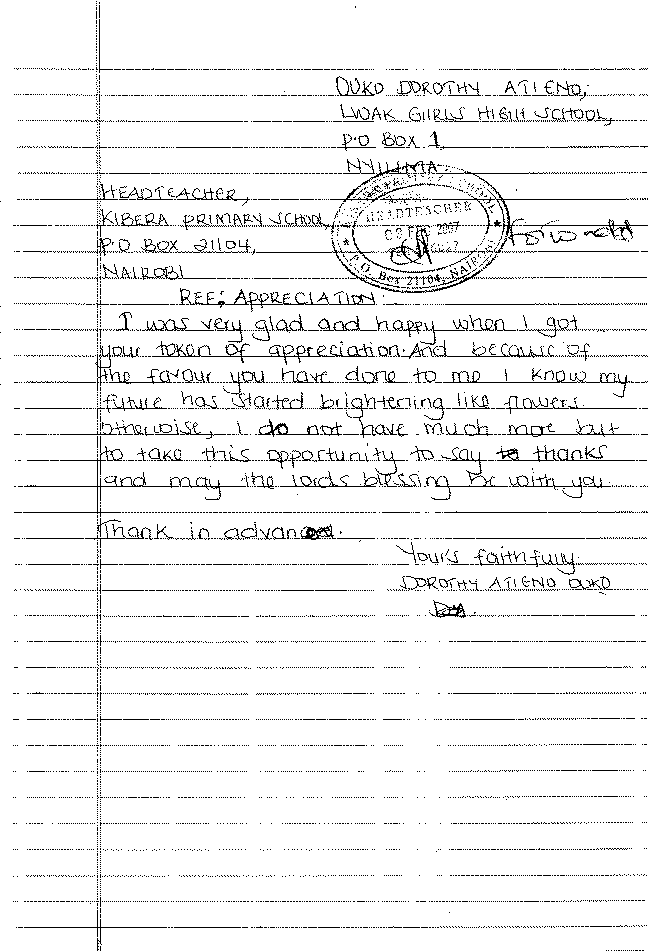 OUKO DOROTHY ATIENO,
LWAK GIRLS HIGH SCHOOL,
P.O BOX 1,
NYILIMA
HEADTEACHER,
KIBERA PRIMARY SCHOOL,
P.O BOX 21104,
NAIROBI
HEADTEACHER
FEB 2007
P.O. Box 21104, NAIROBI
REF: APPRECIATION:
I was very glad and happy when I got
your token of appreciation. And because of
the favour you have done to me I know my
future has started brightening like flowers.
otherwise, I do not have much more but
to take this opportunity to say to thanks
and may the lords blessing be with you
Thank in advanced.
Yours faithfully
DOROTHY ATIENO OUKO